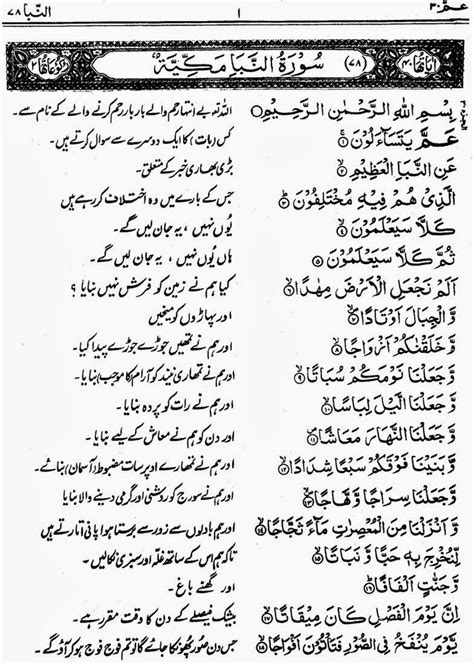 عمّ ۳۰ ۱ النّبا ۷۸
اٰیاتُهَا ۴۰ (۷۸) سُوْرَةُ النَّبَاِ مَكِّيَّةٌ رُكُوْعَاتُهَا ۲
بِسْمِ اللهِ الرَّحْمٰنِ الرَّحِيْمِ اللہ تو بے انتہا رحم والے بار بار رحم کرنے والے کے نام سے۔
عَمَّ يَتَسَآءَلُوْنَ ۱ کس (بات) کا ایک دوسرے سے سوال کرتے ہیں۔
عَنِ النَّبَاِ الْعَظِيْمِ ۲ بڑی بھاری خبر کے متعلق۔
الَّذِيْ هُمْ فِيْهِ مُخْتَلِفُوْنَ ۳ جس کے بارے میں وہ اختلاف کر رہے ہیں
كَلَّا سَيَعْلَمُوْنَ ۴ یُوں نہیں، یہ جان لیں گے۔
ثُمَّ كَلَّا سَيَعْلَمُوْنَ ۵ ہاں یُوں نہیں، یہ جان لیں گے۔
اَلَمْ نَجْعَلِ الْاَرْضَ مِهٰدًا ۶ کیا ہم نے زمین کو فرش نہیں بنایا؟
وَّ الْجِبَالَ اَوْتَادًا ۷ اور پہاڑوں کو میخیں
وَّ خَلَقْنٰكُمْ اَزْوَاجًا ۸ اور ہم نے تمھیں جوڑے جوڑے پیدا کیا۔
وَّ جَعَلْنَا نَوْمَكُمْ سُبَاتًا ۹ اور ہم نے تمھاری نیند کو آرام کا موجب بنایا۔
وَّ جَعَلْنَا الَّيْلَ لِبَاسًا ۱۰ اور ہم نے رات کو پردہ بنایا۔
وَّ جَعَلْنَا النَّهَارَ مَعَاشًا ۱۱ اور دن کو ہم نے معاش کے لیے بنایا۔
وَّ بَنَيْنَا فَوْقَكُمْ سَبْعًا شِدَادًا ۱۲ اور ہم نے تمھارے اوپر سات مضبوط (آسمان) بنائے۔
وَّ جَعَلْنَا سِرَاجًا وَّهَّاجًا ۱۳ اور ہم نے سورج کو روشنی اور گرمی دینے والا بنایا
وَّ اَنْزَلْنَا مِنَ الْمُعْصِرٰتِ مَآءً ثَجَّاجًا ۱۴ اور ہم بادلوں سے زور سے برستا ہوا پانی اتارتے ہیں
لِّنُخْرِجَ بِهٖ حَبًّا وَّ نَبَاتًا ۱۵ تاکہ ہم اس کے ساتھ غلّہ اور سبزی نکالیں۔
وَّ جَنّٰتٍ اَلْفَافًا ۱۶ اور گھنے باغ۔
اِنَّ يَوْمَ الْفَصْلِ كَانَ مِيْقَاتًا ۱۷ بیشک فیصلے کے دن کا وقت مقرر ہے۔
يَّوْمَ يُنْفَخُ فِي الصُّوْرِ فَتَاْتُوْنَ اَفْوَاجًا ۱۸ جس دن صُور پھونکا جائے گا تو تم فوج فوج ہو کر آؤ گے۔